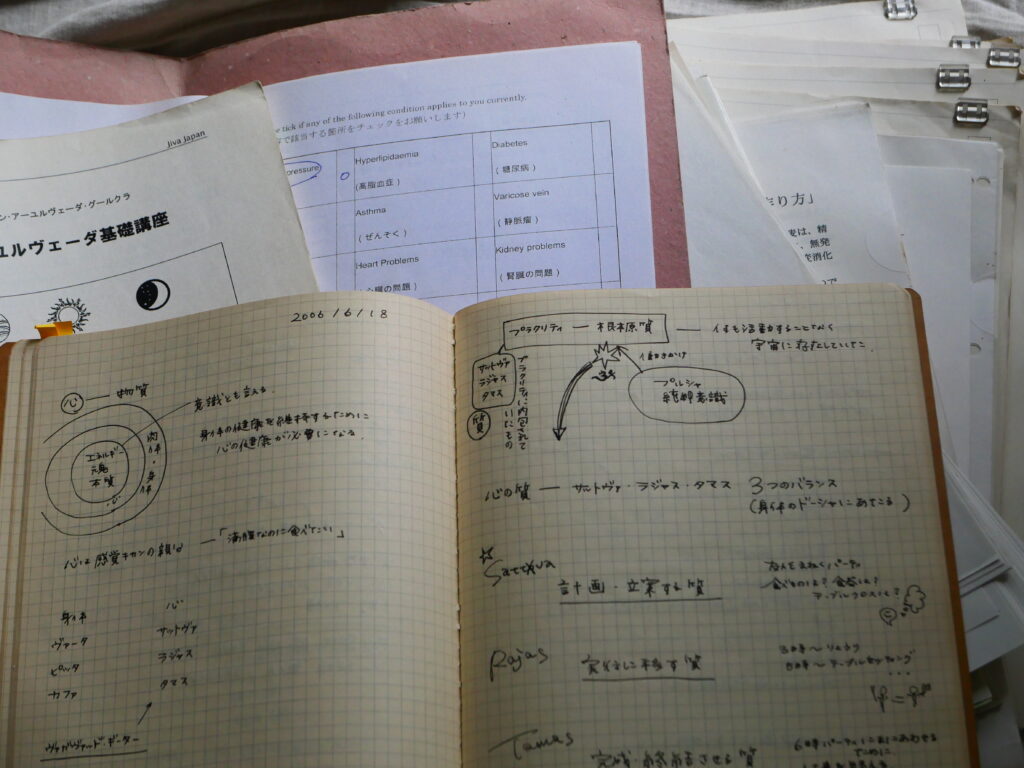 Jiva Japan
ン・アーユルヴェーダ・グールクラ
ユルヴェーダ基礎講座
e tick if any of the following condition applies to you currently.
で該当する箇所をチェックをお願いします）
pressure
Hyperlipidaemia
（高脂血症）
Diabetes
（糖尿病）
Asthma
（ぜんそく）
Varicose vein
（静脈瘤）
Heart Problems
心臓の問題）
Kidney problems
（腎臓の問題）
り方」
は、精
無発
消化
2006/6/18
心 — 物質
意識とも言える
身体の健康を維持するために
心の健康が必要になる
肉体・身体
エネルギー
魂
本質
心
心は感覚キカンの親分 —「満腹なのに食べたい」
身体 心
ヴァータ サットヴァ
ピッタ ラジャス
カファ タマス
ヴァガヴァッド・ギーター
プラクリティ — 根本原質 — 何も活動することなく
宇宙に存在していた
サットヴァ
ラジャス
タマス
質
プラクリティに内包されて
いたもの
働きかけ
プルシャ
純粋意識
心の質 — サットヴァ・ラジャス・タマス 3つのバランス
(身体のドーシャにあたる)
☆
Sattva
計画・立案する質
食べものは?
Rajas
実行に移す質
Tamas
完成・終結させる質